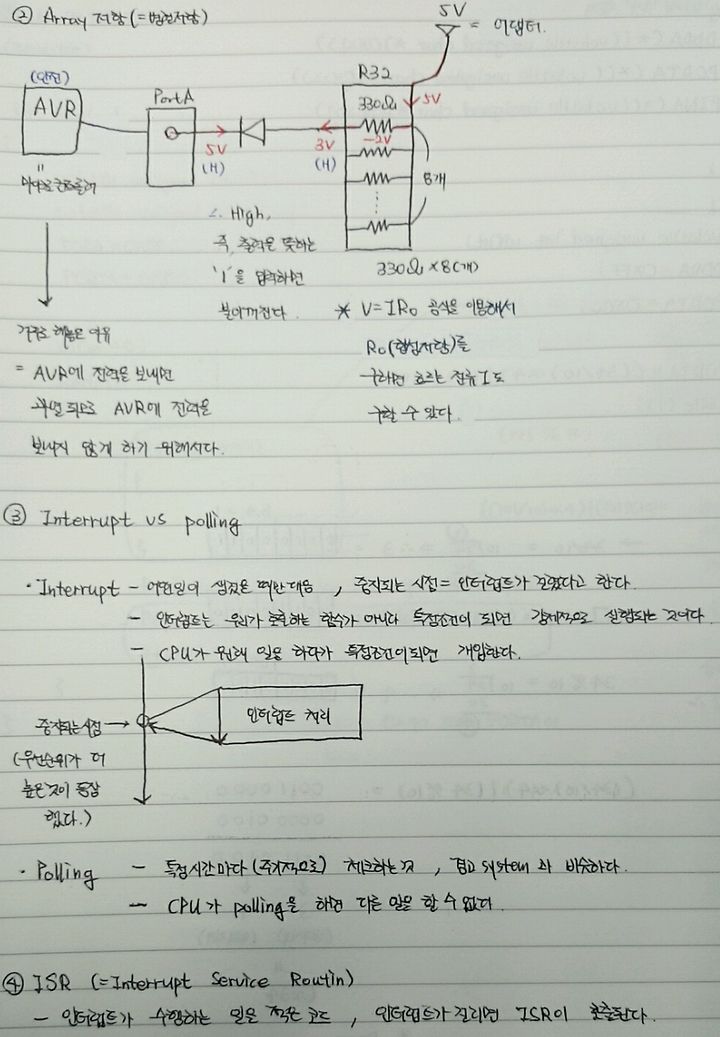 ② Array 저항 (=병렬저항)
5V
= 어댑터.
(안전)
AVR
PortA
R32
330Ω
5V
5V
(H)
3V
(H)
-2V
8개
330Ω × 8(개)
∴ High,
즉, 출력을 뜻하는
'1'을 입력하면
불이꺼진다.
* V=IR₀ 공식을 이용해서
R₀(합성저항)를
구하면 흐르는 전류 I도
구할 수 있다.
거꾸로 해놓은 이유
= AVR에 전력을 보내면
무리 되므로 AVR에 전력을
보내지 않게 하기 위해서다.
③ Interrupt vs polling
· Interrupt - 어떤일이 생겼을 때만 대응 , 중지되는 시점 = 인터럽트가 걸렸다고 한다.
- 인터럽트는 우리가 호출하는 함수가 아니다 특정조건이 되면 강제적으로 실행되는 것이다.
- CPU가 원래 일을 하다가 특정조건이되면 개입한다.
인터럽트 처리
중지되는시점→
(우선순위가 더
높은것이 등장
했다.)
· Polling - 특정시간마다 (주기적으로) 체크하는 것 , 경고 system 과 비슷하다.
- CPU가 polling을 하면 다른 일을 할 수 없다.
④ ISR (=Interrupt Service Routin)
- 인터럽트가 수행하는 일을 적은 코드 , 인터럽트가 걸리면 ISR이 호출된다.